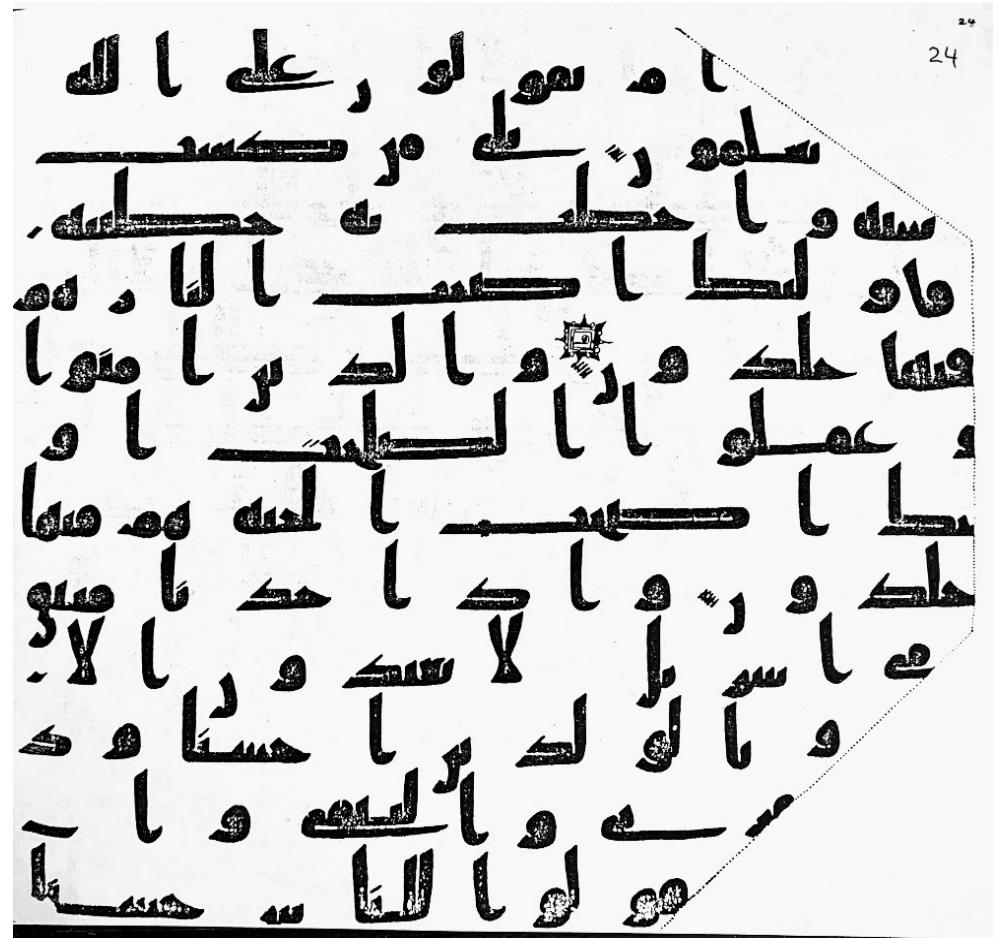 24
24
ام تقولون على الله
تعلمون بلى من كسب
سيئه واحطت به خطيته
فاولئك اصحب النار هم
فيها خلدون والذين امنوا
و عملوا الصلحت او
لئك اصحب الجنه هم فيها
خلدون واذ اخذنا ميثق
بني اسريل لا تعبدون الا
وبالولدين احسنا وذ
واليتمى وا
قولوا للناس حسنا